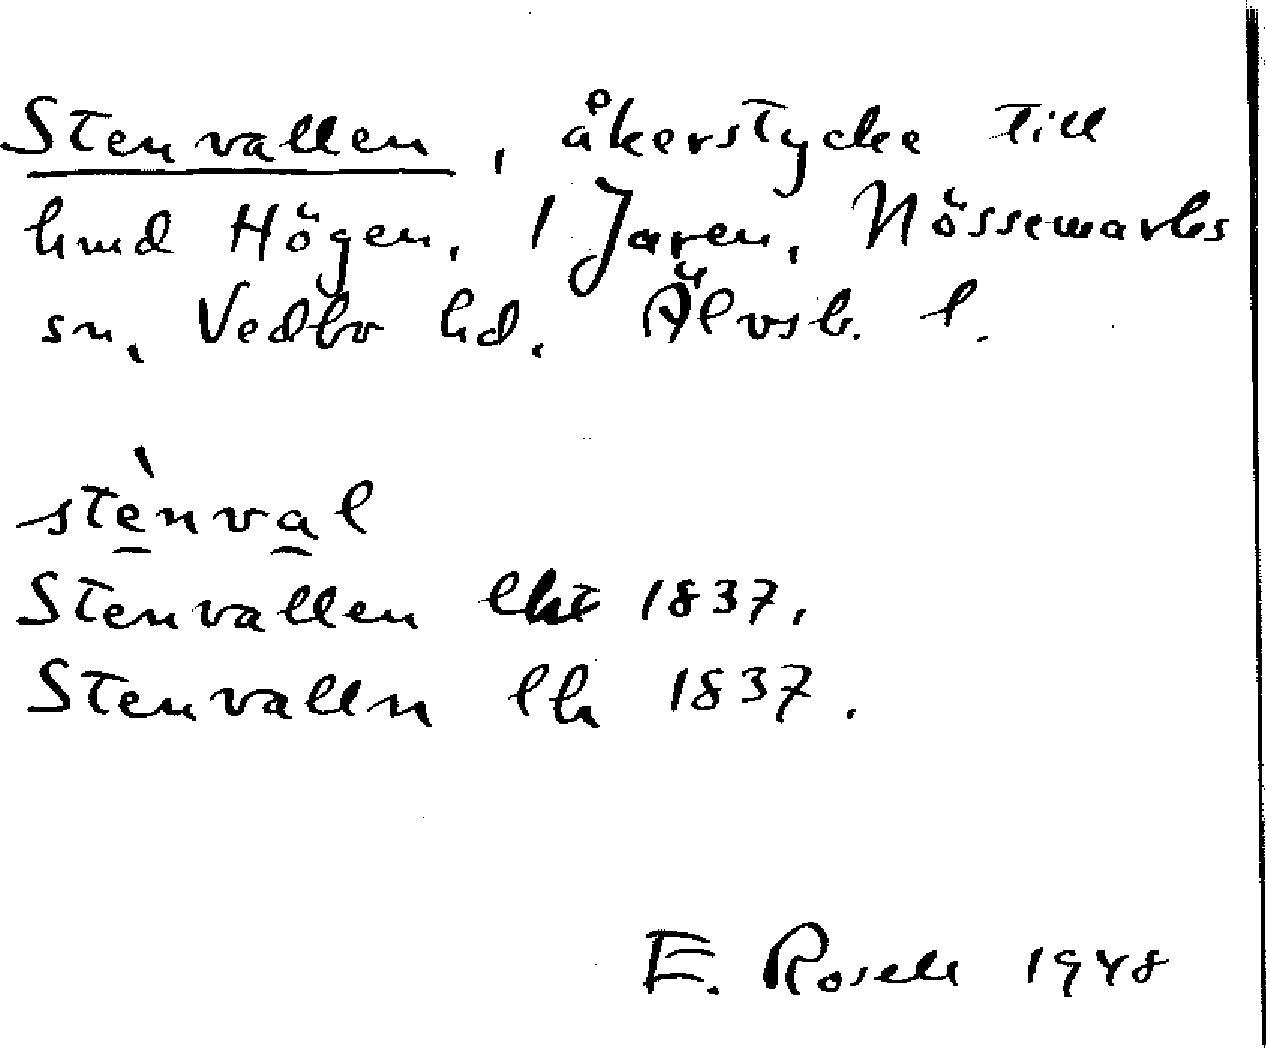 Stenvallen, åkerstycke till
hmd Högen, 1 Jaren, Nössemarks
sn, Vedbo hd, Älvsb. l.
stènval
Stenvallen lht 1837,
Stenvalln lh 1837.
E. Rosell 1948